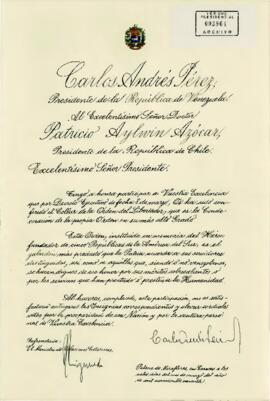 PERIODO
PRESIDENCIAL
003961
ARCHIVO
Carlos Andrés Pérez,
Presidente de la República de Venezuela
Al Excelentísimo Señor Doctor
Patricio Aylwin Azócar,
Presidente de la República de Chile.
Excelentísimo Señor Presidente:
Tengo a honra participar a Vuestra Excelencia
que por Decreto Ejecutivo de fecha 8 de marzo, Os ha sido con-
ferido el Collar de la Orden del Libertador, que es la Conde-
coración de la propia Orden en su más alto Grado.
Esta Orden, instituida en memoria del Liber-
tador de cinco Repúblicas de la América del Sur, es el
galardón más preciado que la Patria acuerda a sus servidores
distinguidos, así como a aquellos que, siendo o no venezolanos,
se hacen dignos de ese honor por sus méritos sobresalientes o
por los servicios que han prestado a la Humanidad.
Al haceros, complacido, esta participación, me es satis-
factorio entregaros las Insignias correspondientes y elevar mis votos
por la prosperidad de esa Nación y por la ventura per-
sonal de Vuestra Excelencia.
Refrendado
El Ministro de Relaciones Exteriores,
Palacio de Miraflores, en Caracas a los
días del mes de marzo del año
de mil novecientos noventa